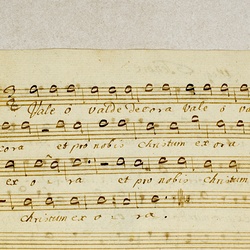 Vale o valde decora Vale o va
cora et pro nobis Christum exora
ex o ra et pro nobis christum
Christum ex o ra.